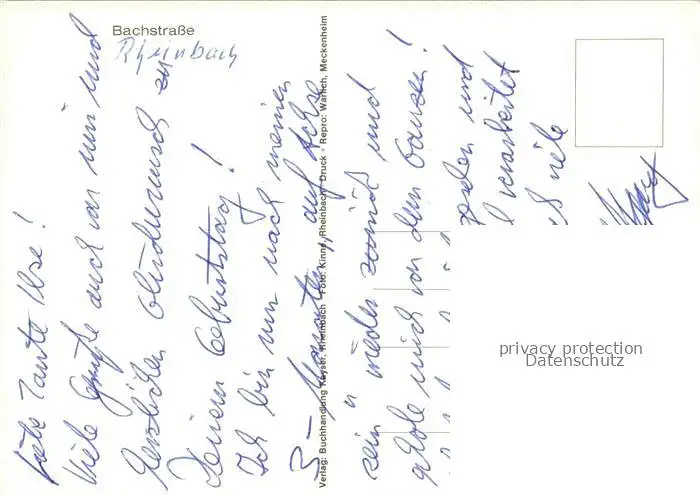 Bachstraße
Rheinbach
Liebe Tante Ilse!
Viele Grüße auch von mir und
herzlichen Glückwunsch zu
Deinem Geburtstag!
Ich bin nun nach meinen
3 - Monaten "auf Achse
sein" wieder zurück und
erhole mich von dem Ganzen!
und
verarbeitet
viele
Verlag: Buchhandlung Kayser, Rheinbach · Foto: Kinna, Rheinbach · Druck - Repro: Warlich, Meckenheim
privacy protection
Datenschutz